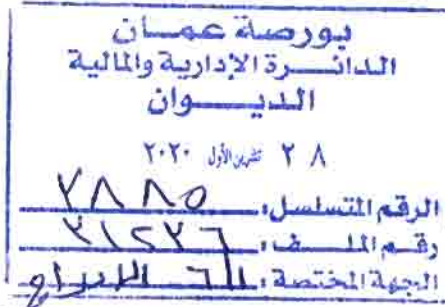 بورصة عمان
الدائرة الإدارية والمالية
الديوان
٢٨ تشرين الأول ٢٠٢٠
الرقم المتسلسل:
رقم الملف:
الجهة المختصة: الإدراج